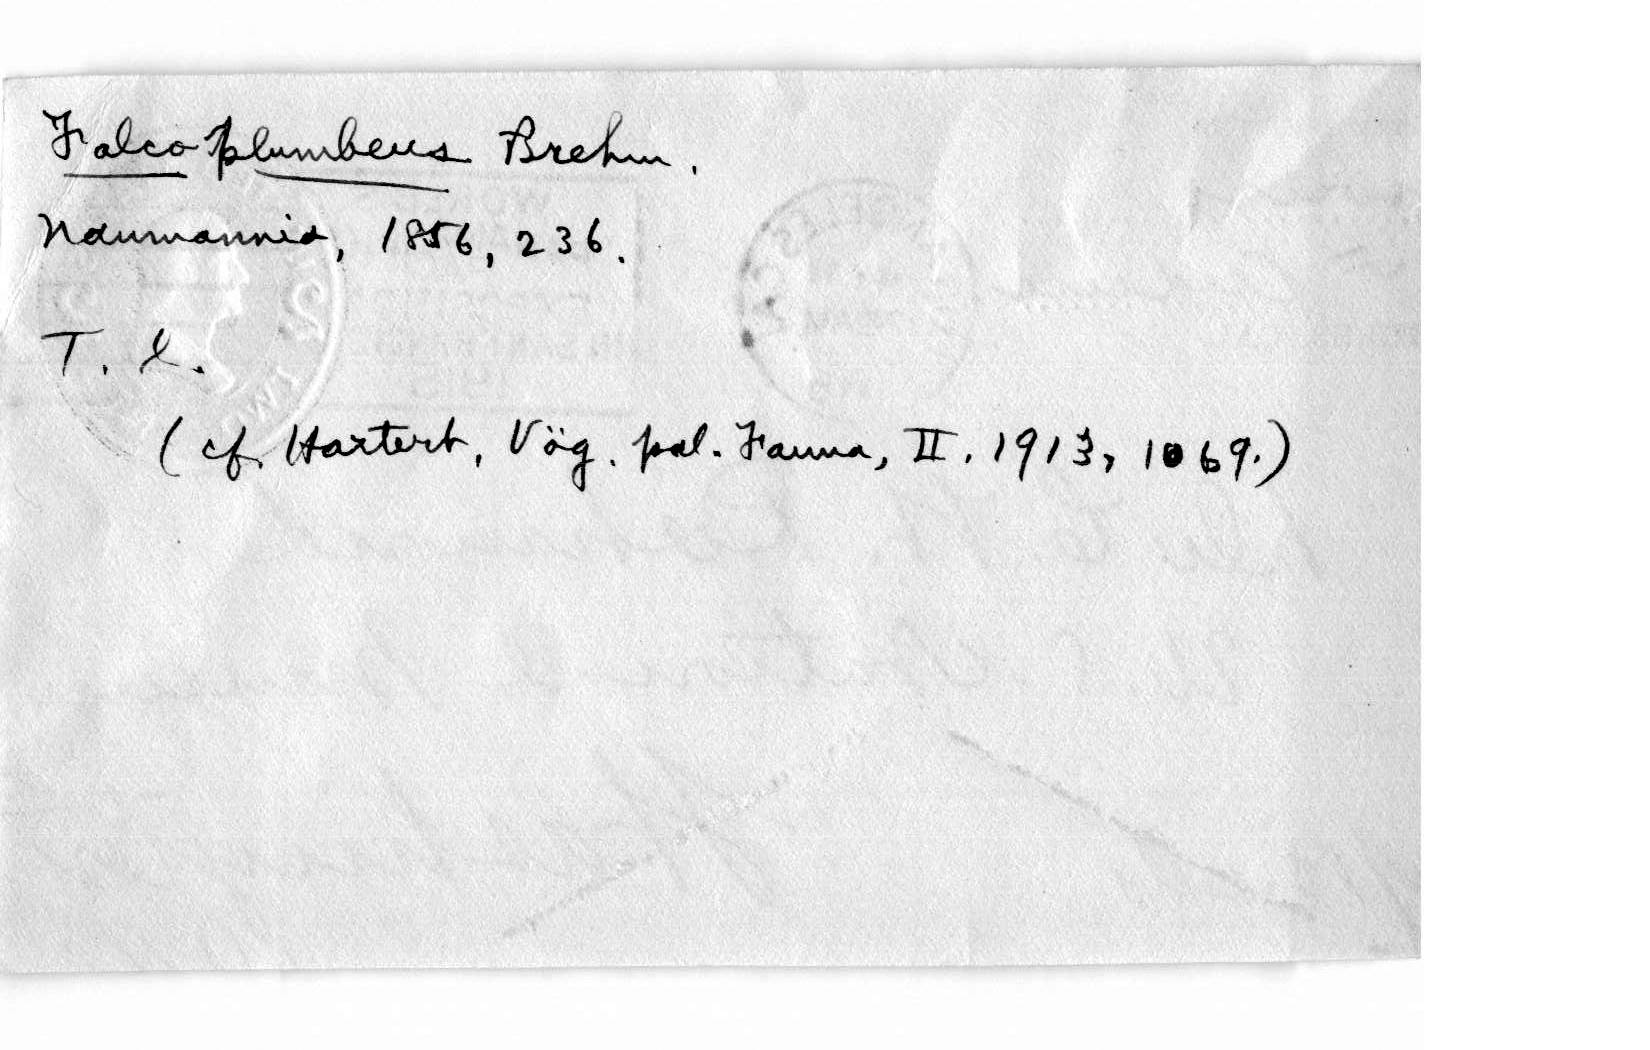 Falco plumbeus Brehm.
Naumannia, 1856, 236.
T. l.
(cf. Hartert, Vög. pal. Fauna, II. 1913, 1069.)